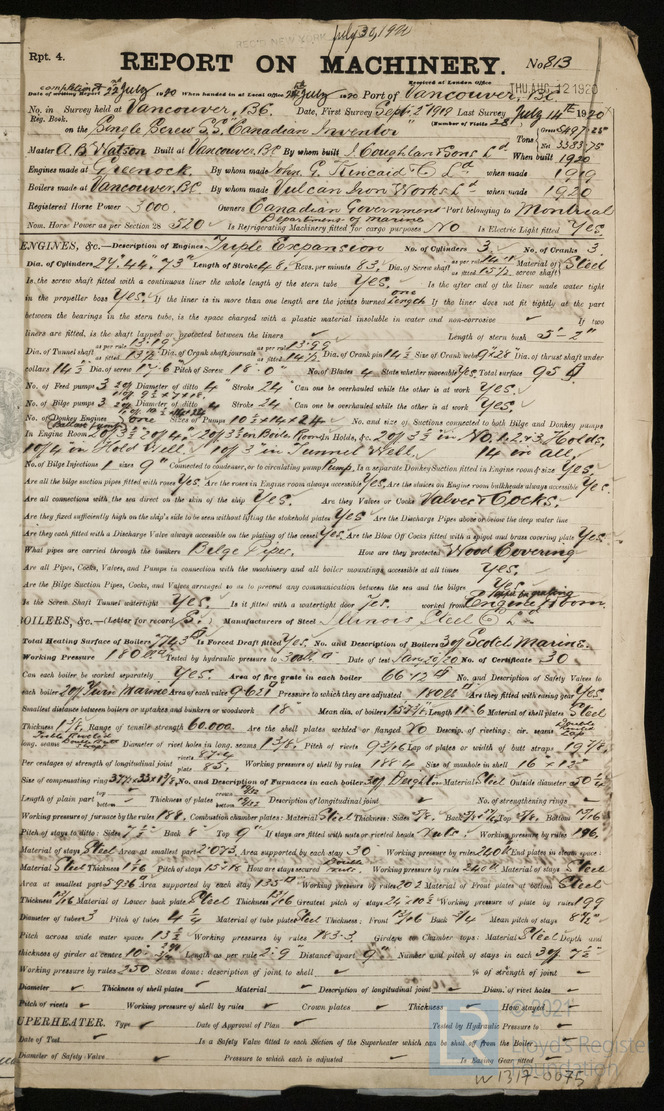 July 30, 1920
Rpt. 4.
REPORT ON MACHINERY.
No. 813
Received at London Office
THU. AUG. 12 1920
Date of writing Report 22nd July 1920 When handed in at Local Office July 1920 Port of Vancouver, B.C.
No. in Survey held at Vancouver, B.C. Date, First Survey Sept 2nd 1919 Last Survey July 14th 1920
Reg. Book.
(Number of Visits 28)
on the Single Screw S.S. "Canadian Inventor"
Tons Gross 5497.25
Net 3383.75
Master A. B. Watson Built at Vancouver, B.C. By whom built J. Coughlan & Sons Ld When built 1920
Engines made at Greenock. By whom made John G. Kincaid & Co Ld when made 1919
Boilers made at Vancouver B.C. By whom made Vulcan Iron Works Ld when made 1920
Registered Horse Power 3000. Owners Canadian Government Department of Marine Port belonging to Montreal
Nom. Horse Power as per Section 28 520 Is Refrigerating Machinery fitted for cargo purposes No Is Electric Light fitted Yes
ENGINES, &c.—Description of Engines Triple Expansion No. of Cylinders 3 No. of Cranks 3
Dia. of Cylinders 27" 44" 73" Length of Stroke 48" Revs. per minute 83 Dia. of Screw shaft as per rule as fitted 15 1/2 Material of screw shaft Steel
Is the screw shaft fitted with a continuous liner the whole length of the stern tube Yes. Is the after end of the liner made water tight
in the propeller boss Yes. If the liner is in more than one length are the joints burned one length If the liner does not fit tightly at the part
between the bearings in the stern tube, is the space charged with a plastic material insoluble in water and non-corrosive ✓ If two
liners are fitted, is the shaft lapped or protected between the liners ✓ Length of stern bush 5'-2"
Dia. of Tunnel shaft as per rule 13.19 as fitted 13 1/2 Dia. of Crank shaft journals as per rule 13.99 as fitted 14 1/2 Dia. of Crank pin 14 1/2 Size of Crank webs 9" x 28" Dia. of thrust shaft under
collars 14 1/2 Dia. of screw 17'-6" Pitch of Screw 18'-0" No. of Blades 4 State whether moveable Yes Total surface 95
No. of Feed pumps 3 Diameter of ditto 4 Stroke 24 Can one be overhauled while the other is at work Yes.
No. of Bilge pumps 3 Diameter of ditto 4 Stroke 24 Can one be overhauled while the other is at work Yes.
No. of Donkey Engines one Sizes of Pumps 10 1/2 x 14 x 24 No. and size of Suctions connected to both Bilge and Donkey pumps
(Ballast pump)
In Engine Room 2 of 3 1/2 2 of 4" 2 of 3 1/2 in Boiler Room In Holds, &c. 2 of 3 1/2 in No. 1, 2 & 3 Holds,
1 of 4 in Hold Well. 1 of 3 in Tunnel Well. 14 in all.
No. of Bilge Injections 1 sizes 9" Connected to condenser, or to circulating pump Pump. Is a separate Donkey Suction fitted in Engine room & size Yes
Are all the bilge suction pipes fitted with roses Yes. Are the roses in Engine room always accessible Yes. Are the sluices on Engine room bulkheads always accessible Yes.
Are all connections with the sea direct on the skin of the ship Yes. Are they Valves or Cocks Valves & Cocks.
Are they fixed sufficiently high on the ship's side to be seen without lifting the stokehold plates Yes Are the Discharge Pipes above or below the deep water line
Are they each fitted with a Discharge Valve always accessible on the plating of the vessel Yes. Are the Blow Off Cocks fitted with a spigot and brass covering plate Yes.
What pipes are carried through the bunkers Bilge Pipes. How are they protected Wood Covering
Are all Pipes, Cocks, Valves, and Pumps in connection with the machinery and all boiler mountings accessible at all times Yes.
Are the Bilge Suction Pipes, Cocks, and Valves arranged so as to prevent any communication between the sea and the bilges Yes.
Is the Screw Shaft Tunnel watertight Yes. Is it fitted with a watertight door Yes. worked from Engine Room.
BOILERS, &c.—(Letter for record S.) Manufacturers of Steel Illinois Steel Co Ld
Total Heating Surface of Boilers 7743 Is Forced Draft fitted Yes. No. and Description of Boilers 3 of Scotch Marine.
Working Pressure 180 Tested by hydraulic pressure to Date of test Jan 20/20 No. of Certificate 30
Can each boiler be worked separately Yes. Area of fire grate in each boiler 66.12 No. and Description of Safety Valves to
each boiler 2 of Twin Marine Area of each valve 9.621 Pressure to which they are adjusted 180 Are they fitted with easing gear Yes
Smallest distance between boilers or uptakes and bunkers or woodwork 18" Mean dia. of boilers Length 11-6 Material of shell plates Steel
Thickness 1 3/8 Range of tensile strength 60,000. Are the shell plates welded or flanged No Descrip. of riveting: cir. seams Double Lap
long. seams Diameter of rivet holes in long. seams 1 3/8 Pitch of rivets 9 3/16 Lap of plates or width of butt straps 19 7/8
Per centages of strength of longitudinal joint rivets plate 85. Working pressure of shell by rules 188.4 Size of manhole in shell 16" x 12"
Size of compensating ring No. and Description of Furnaces in each boiler 3 of Deighton Material Steel Outside diameter
Length of plain part top bottom Thickness of plates crown bottom Description of longitudinal joint ✓ No. of strengthening rings ✓
Working pressure of furnace by the rules 188. Combustion chamber plates: Material Steel Thickness: Sides 5/8 Back Top 5/8 Bottom
Pitch of stays to ditto: Sides 7 1/2" Back 8" Top 9" If stays are fitted with nuts or riveted heads Nuts. Working pressure by rules 196.
Material of stays Steel Area at smallest part 2.073 Area supported by each stay 30 Working pressure by rules 240 End plates in steam space:
Material Steel Thickness 1 1/16 Pitch of stays How are stays secured Double nuts. Working pressure by rules Material of stays Steel
Area at smallest part 5.936 Area supported by each stay 135 Working pressure by rules 202 Material of Front plates at bottom Steel
Thickness 13/16 Material of Lower back plate Steel Thickness 13/16 Greatest pitch of stays Working pressure of plate by rules 199
Diameter of tubes 3 Pitch of tubes 4 1/4 Material of tube plates Steel Thickness: Front 13/16 Back 3/4 Mean pitch of stays
Pitch across wide water spaces 13 1/2 Working pressures by rules 183.3 Girders to Chamber tops: Material Steel Depth and
thickness of girder at centre 10" Length as per rule 2-9 Distance apart 9" Number and pitch of stays in each 3 of 7 1/2
Working pressure by rules 250 Steam dome: description of joint to shell ✓ % of strength of joint ✓
Diameter ✓ Thickness of shell plates ✓ Material ✓ Description of longitudinal joint ✓ Diam. of rivet holes ✓
Pitch of rivets ✓ Working pressure of shell by rules ✓ Crown plates ✓ Thickness ✓ How stayed
SUPERHEATER. Type ✓ Date of Approval of Plan ✓ Tested by Hydraulic Pressure to ✓
Date of Test ✓ Is a Safety Valve fitted to each Section of the Superheater which can be shut off from the Boiler
Diameter of Safety Valve ✓ Pressure to which each is adjusted ✓ Is Easing Gear fitted ✓
© 2021
Lloyd's Register
Foundation
W1317-0075